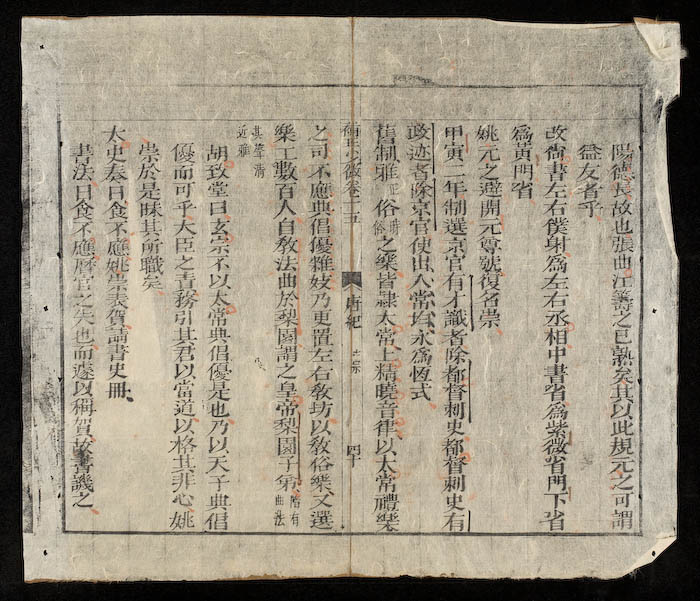 陽德長故也張曲江籌之已熟矣其以此規元之可謂
益友者乎
改尚書左右僕射為左右丞相中書省為紫微省門下省
為黃門省
姚元之避開元尊號復名崇
甲寅二年制選京官有才識者除都督刺史都督刺史有
政迹者除京官使出入常均永為恆式
舊制雅正俗之樂皆隸太常上精曉音律以太常禮樂
卷二十五
唐紀
四十
之司不應典倡優雜妓乃更置左右教坊以教俗樂又選
樂工數百人自教法曲於梨園謂之皇帝梨園子弟隋有法曲
其聲清
近雅
胡致堂曰玄宗不以太常典倡優是也乃以天子典倡
優而可乎大臣之責務引其君以當道以格其非心姚
崇於是昧其所職矣
太史奏日食不應姚崇表賀請書史冊
書法日食不應曆官之失也而遽以稱賀故書譏之